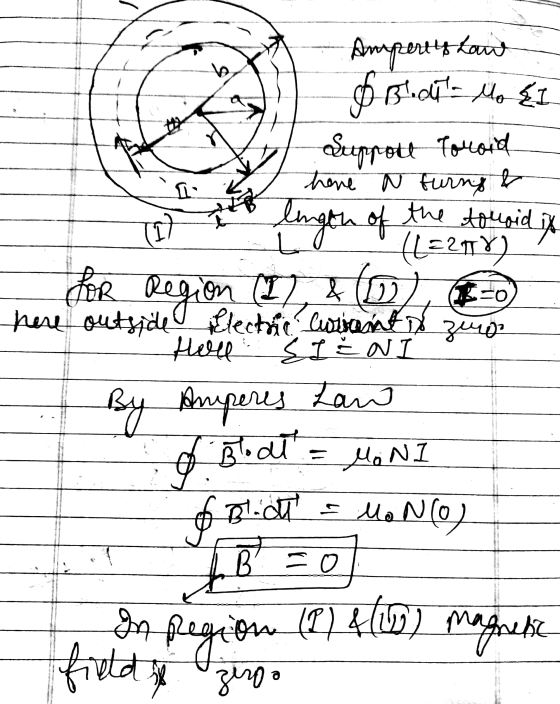 b
a
r
III
II
(I)
l B
Ampere's Law
∮ B⃗·dl⃗ = μ₀ ΣI
Suppose Toroid
have N turns &
length of the toroid is
L (L=2πr)
FOR Region (I), & (III), (I=0)
here outside Electric Current is zero.
Here ΣI = NI
By Amperes Law
∮ B⃗·dl⃗ = μ₀NI
∮ B⃗·dl⃗ = μ₀N(0)
B⃗ = 0
In Region (I) & (III) Magnetic
field is zero.